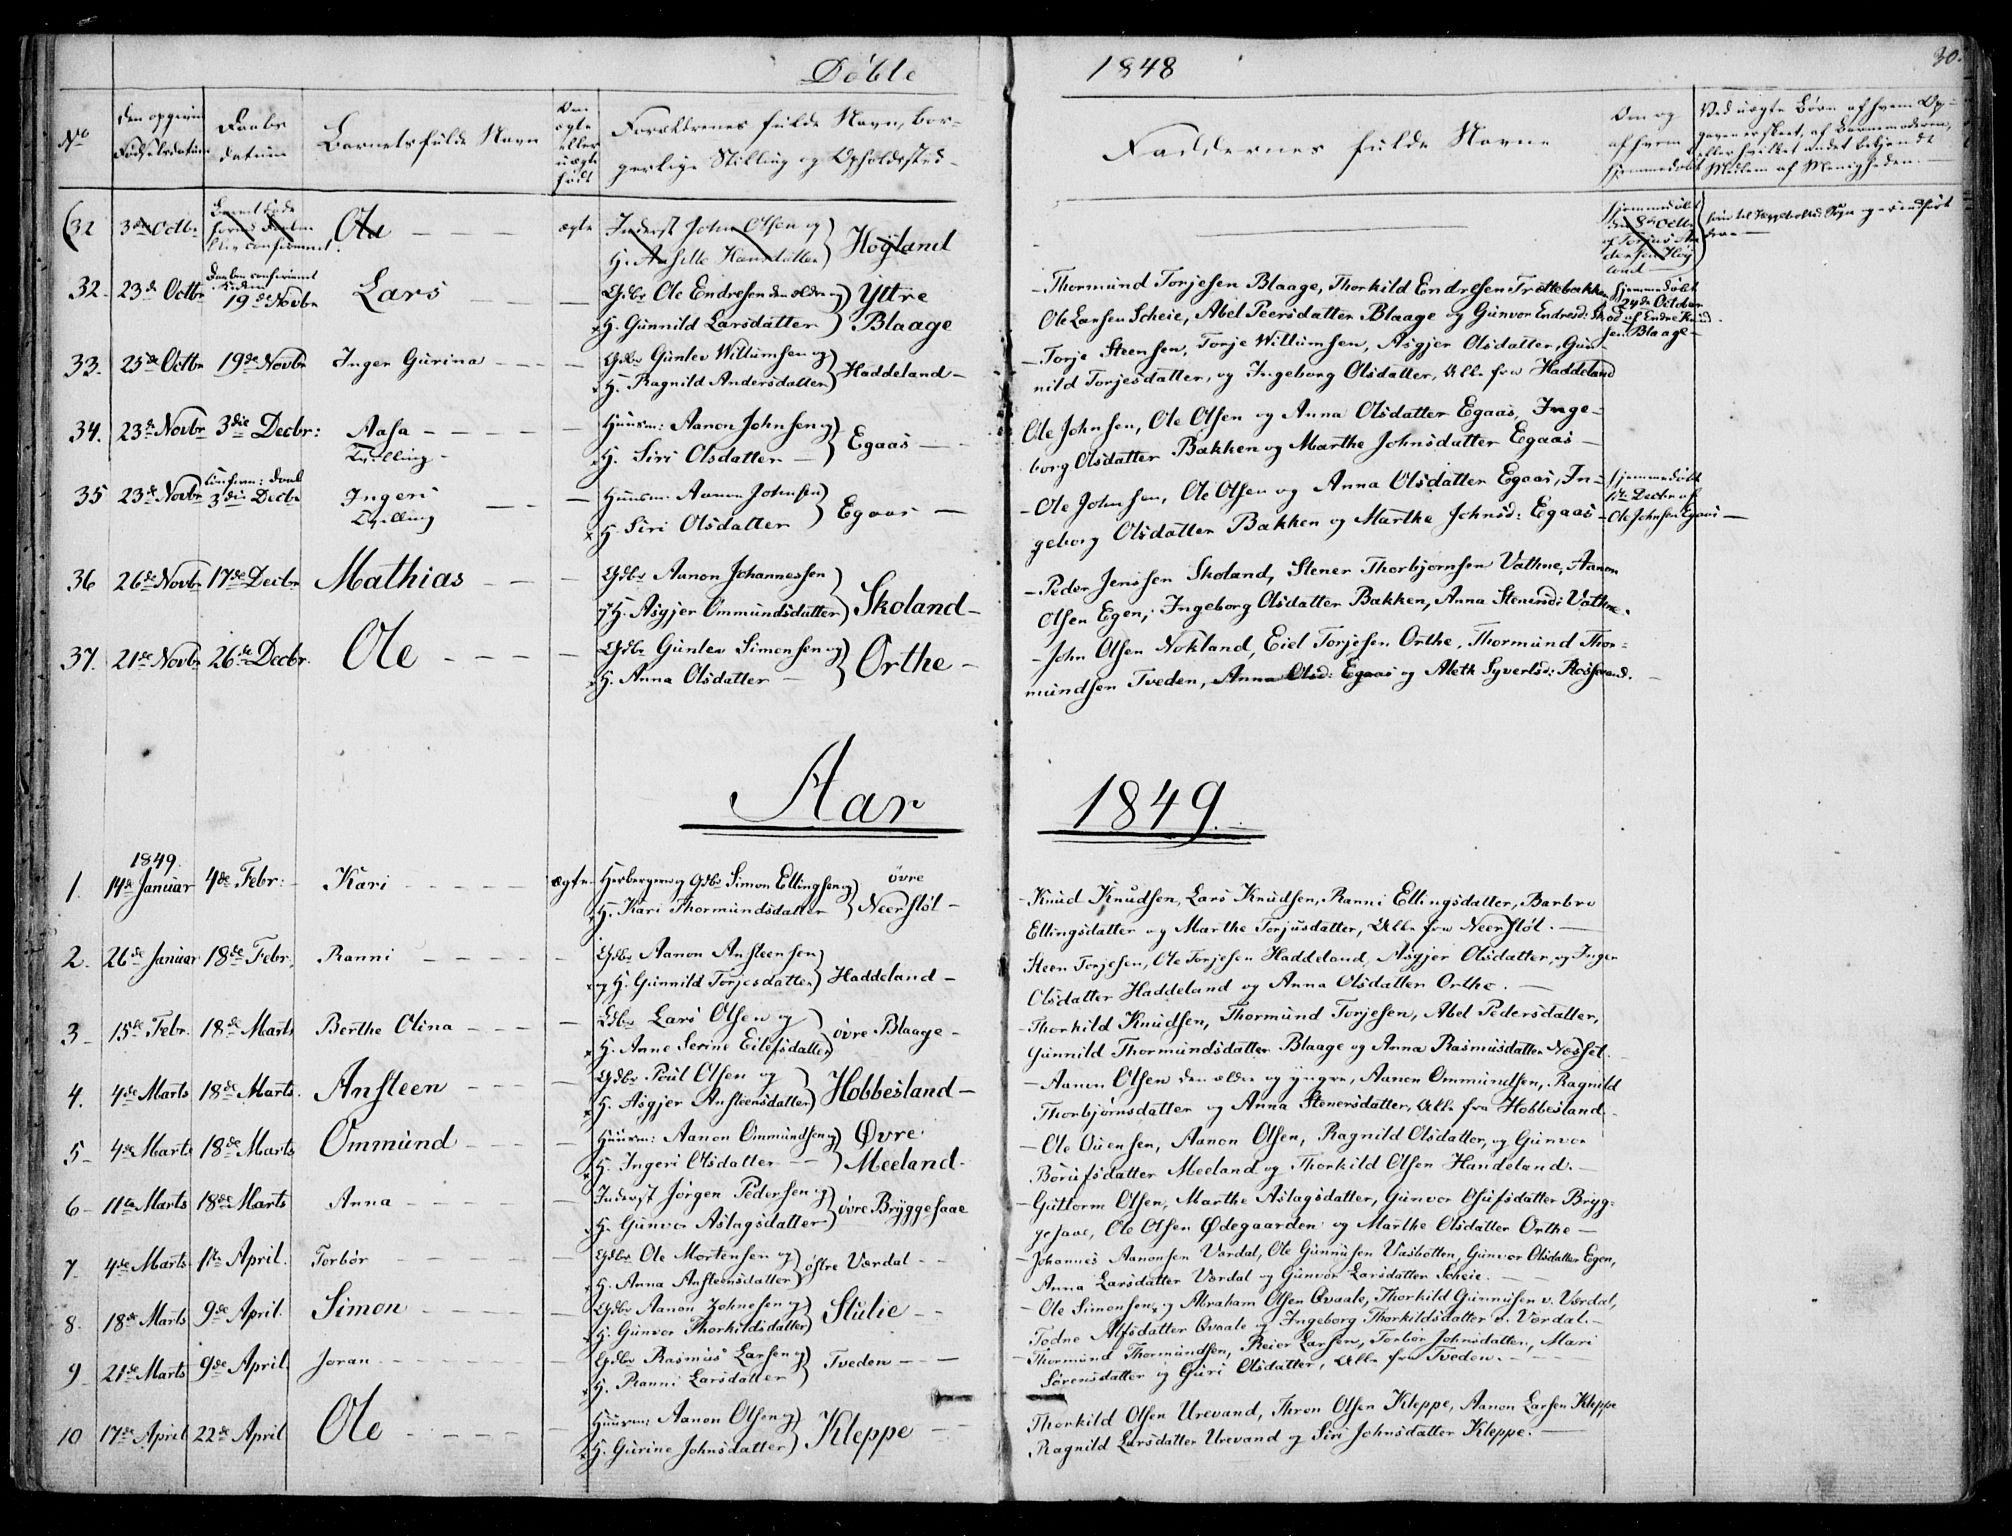 Døbte 1848 30.
No
den opgivne Fødselsdatum
Daabs datum
Barnets fulde Navn
Om ægte eller uægte født
Forældrenes fulde Navn, borgerlige Stilling og Opholdssted
Faddernes fulde Navne
Om og af hvem hjemmedøbt
Ved uægte Børn af hvem Opgaven er skeet, af Barnemoderen, eller hvilket andet bekjendt Medlem af Menigheden.
(32 3de Octbr Ole ægte Inderst John Olsen og
H. Anselle Hansdatter Høyland
hjemmedøbt den 8de Octbr
32. 23de Octbr Daaben confirmeret 19de Novbr Lars Gdbr Ole Endresen den ældre og
H. Gunnild Larsdatter Yttre Blaage
Thormund Torjesen Blaage, Thorkild Endresen Trøttebakken
Ole Larsen Scheie, Abel Peersdatter Blaage og Gunvor Endresd:
hjemmedøbt 24de October af Endre Knudsen Blaage
33. 25de Octbr 19de Novbr Inger Gurina Gdbr Gunlev Willumsen og
H. Ragnild Andersdatter Haddeland
Torje Steensen, Torje Willumsen, Asgjer Olsdatter, Gunnild Torjesdatter, og Ingeborg Olsdatter, Alle fra Haddeland
34. 23de Novbr 3die Decbr: Aasa Tvilling Huusm: Aanon Johnsen og
H. Siri Olsdatter Egaas
Ole Johnsen, Ole Olsen og Anna Olsdatter Egaas, Ingeborg Olsdatter Bakken og Marthe Johnsdatter Egaas
35 23de Novbr confirm: Daab 3die Decbr Ingeri Tvilling Huusm: Aanon Johnsen
H. Siri Olsdatter Egaas
Ole Johnsen, Ole Olsen og Anna Olsdatter Egaas, Ingeborg Olsdatter Bakken og Marthe Johnsd: Egaas
hjemmedøbt 1ste Decbr af Ole Johnsen Egaas
36 26de Novbr 17de Decbr Mathias Gdbr Aanon Johannessen
H. Asgjer Ommundsdatter Skoland
Peder Jenssen Skoland, Stener Thorbjørnsen Vathne, Aanon
Olsen Egen, Ingeborg Olsdatter Bakken, Anna Stenersd: Vathne.
37. 21de Novbr 26de Decbr. Ole Gdbr Gunlev Simonsen og
H. Anna Olsdatter Orthe
John Olsen Nokland, Eiel Torjesen Orthe, Thormund Thormundsen Tveden, Anna Olsd: Egaas og Aleth Syvertsd: Røssevand.
Aar 1849.
1849.
1. 14de Januar 4de Febr: Kari ægte Herbergerer og Gdbr Simon Ellingsen og
H. Kari Thormundsdatter øvre Neerstøl
Knud Knudsen, Lars Knudsen, Ranni Ellingsdatter, Barbro
Ellingsdatter og Marthe Torjusdatter, Alle fra Neerstøl.
2. 26de Januar 18de Febr. Ranni Gdbr Aanon Ansteensen
og H. Gunnild Torjesdatter Haddeland
Steen Torjesen, Ole Torjesen Haddeland, Asgjer Olsdatter, og Inger
Olsdatter Haddeland og Anna Olsdatter Orthe.
3 15de Febr. 18de Marts Berthe Olina Gdbr Lars Olsen og
H. Anne Serine Eilefsdatter øvre Blaage
Thorkild Knudsen, Thormund Torjesen, Abel Pedersdatter,
Gunnild Thormundsdatter Blaage og Anna Rasmusdatter Nesset.
4. 4de Marts 18de Marts. Ansteen Gdbr Poul Olsen og
H. Asgjer Ansteensdatter Hobbesland
Aanon Olsen den ældre og yngre, Aanon Ommundsen, Ragnild
Thorbjørnsdatter og Anna Stenersdatter, Alle fra Hobbesland.
5 4de Marts 18de Marts Ommund Huusm: Aanon Ommundsen og
H. Ingeri Olsdatter Øvre Meeland.
Ole Ouensen, Aanon Olsen, Ragnild Olsdatter, og Gunvor
Børufsdatter Meeland og Thorkild Olsen Handeland.
6 11te Marts 18de Marts Anna Inderst Jørgen Pedersen og
H. Gunvor Aslagsdatter øvre Bryggesaae
Guttorm Olsen, Marthe Aslagsdatter, Gunvor Osufsdatter Bryggesaae, Ole Olsen Ødegaarden og Marthe Olsdatter Orthe
7 4de Marts 1ste April. Torbør Gdbr Ole Mortensen og
H. Anna Ansteensdatter østre Værdal
Johannes Aanonsen Vardal, Ole Gunnusen Vasbotten, Gunvor Olsdatter Egen,
Anna Larsdatter Værdal og Gunvor Larsdatter Scheie.
8. 18de Marts 9de April. Simon Gdbr Aanon Johnesen og
H. Gunvor Thorkildsdatter Stulie
Ole Simonsen, og Abraham Olsen Qvaale, Thorkild Gunnusen v. Værdal,
Todne Alfsdatter Qvaale og Ingeborg Thorkildsdatter v. Værdal.
9 21de Marts 9de April. Joran Gdbr Rasmus Larsen og
H. Ranni Larsdatter Tveden
Thormund Thormundsen, Reier Larsen, Torbør Johnsdatter, Mari
Sørensdatter og Guri Olsdatter, Alle fra Tveden.
10 17de April 22de April Ole Huusm: Aanon Olsen og
H. Gurine Johnsdatter Kleppe
Thorkild Olsen Urevand, Thron Olsen Kleppe, Aanon Larsen Kleppe
Ragnild Larsdatter Urevand og Siri Johnsdatter Kleppe.